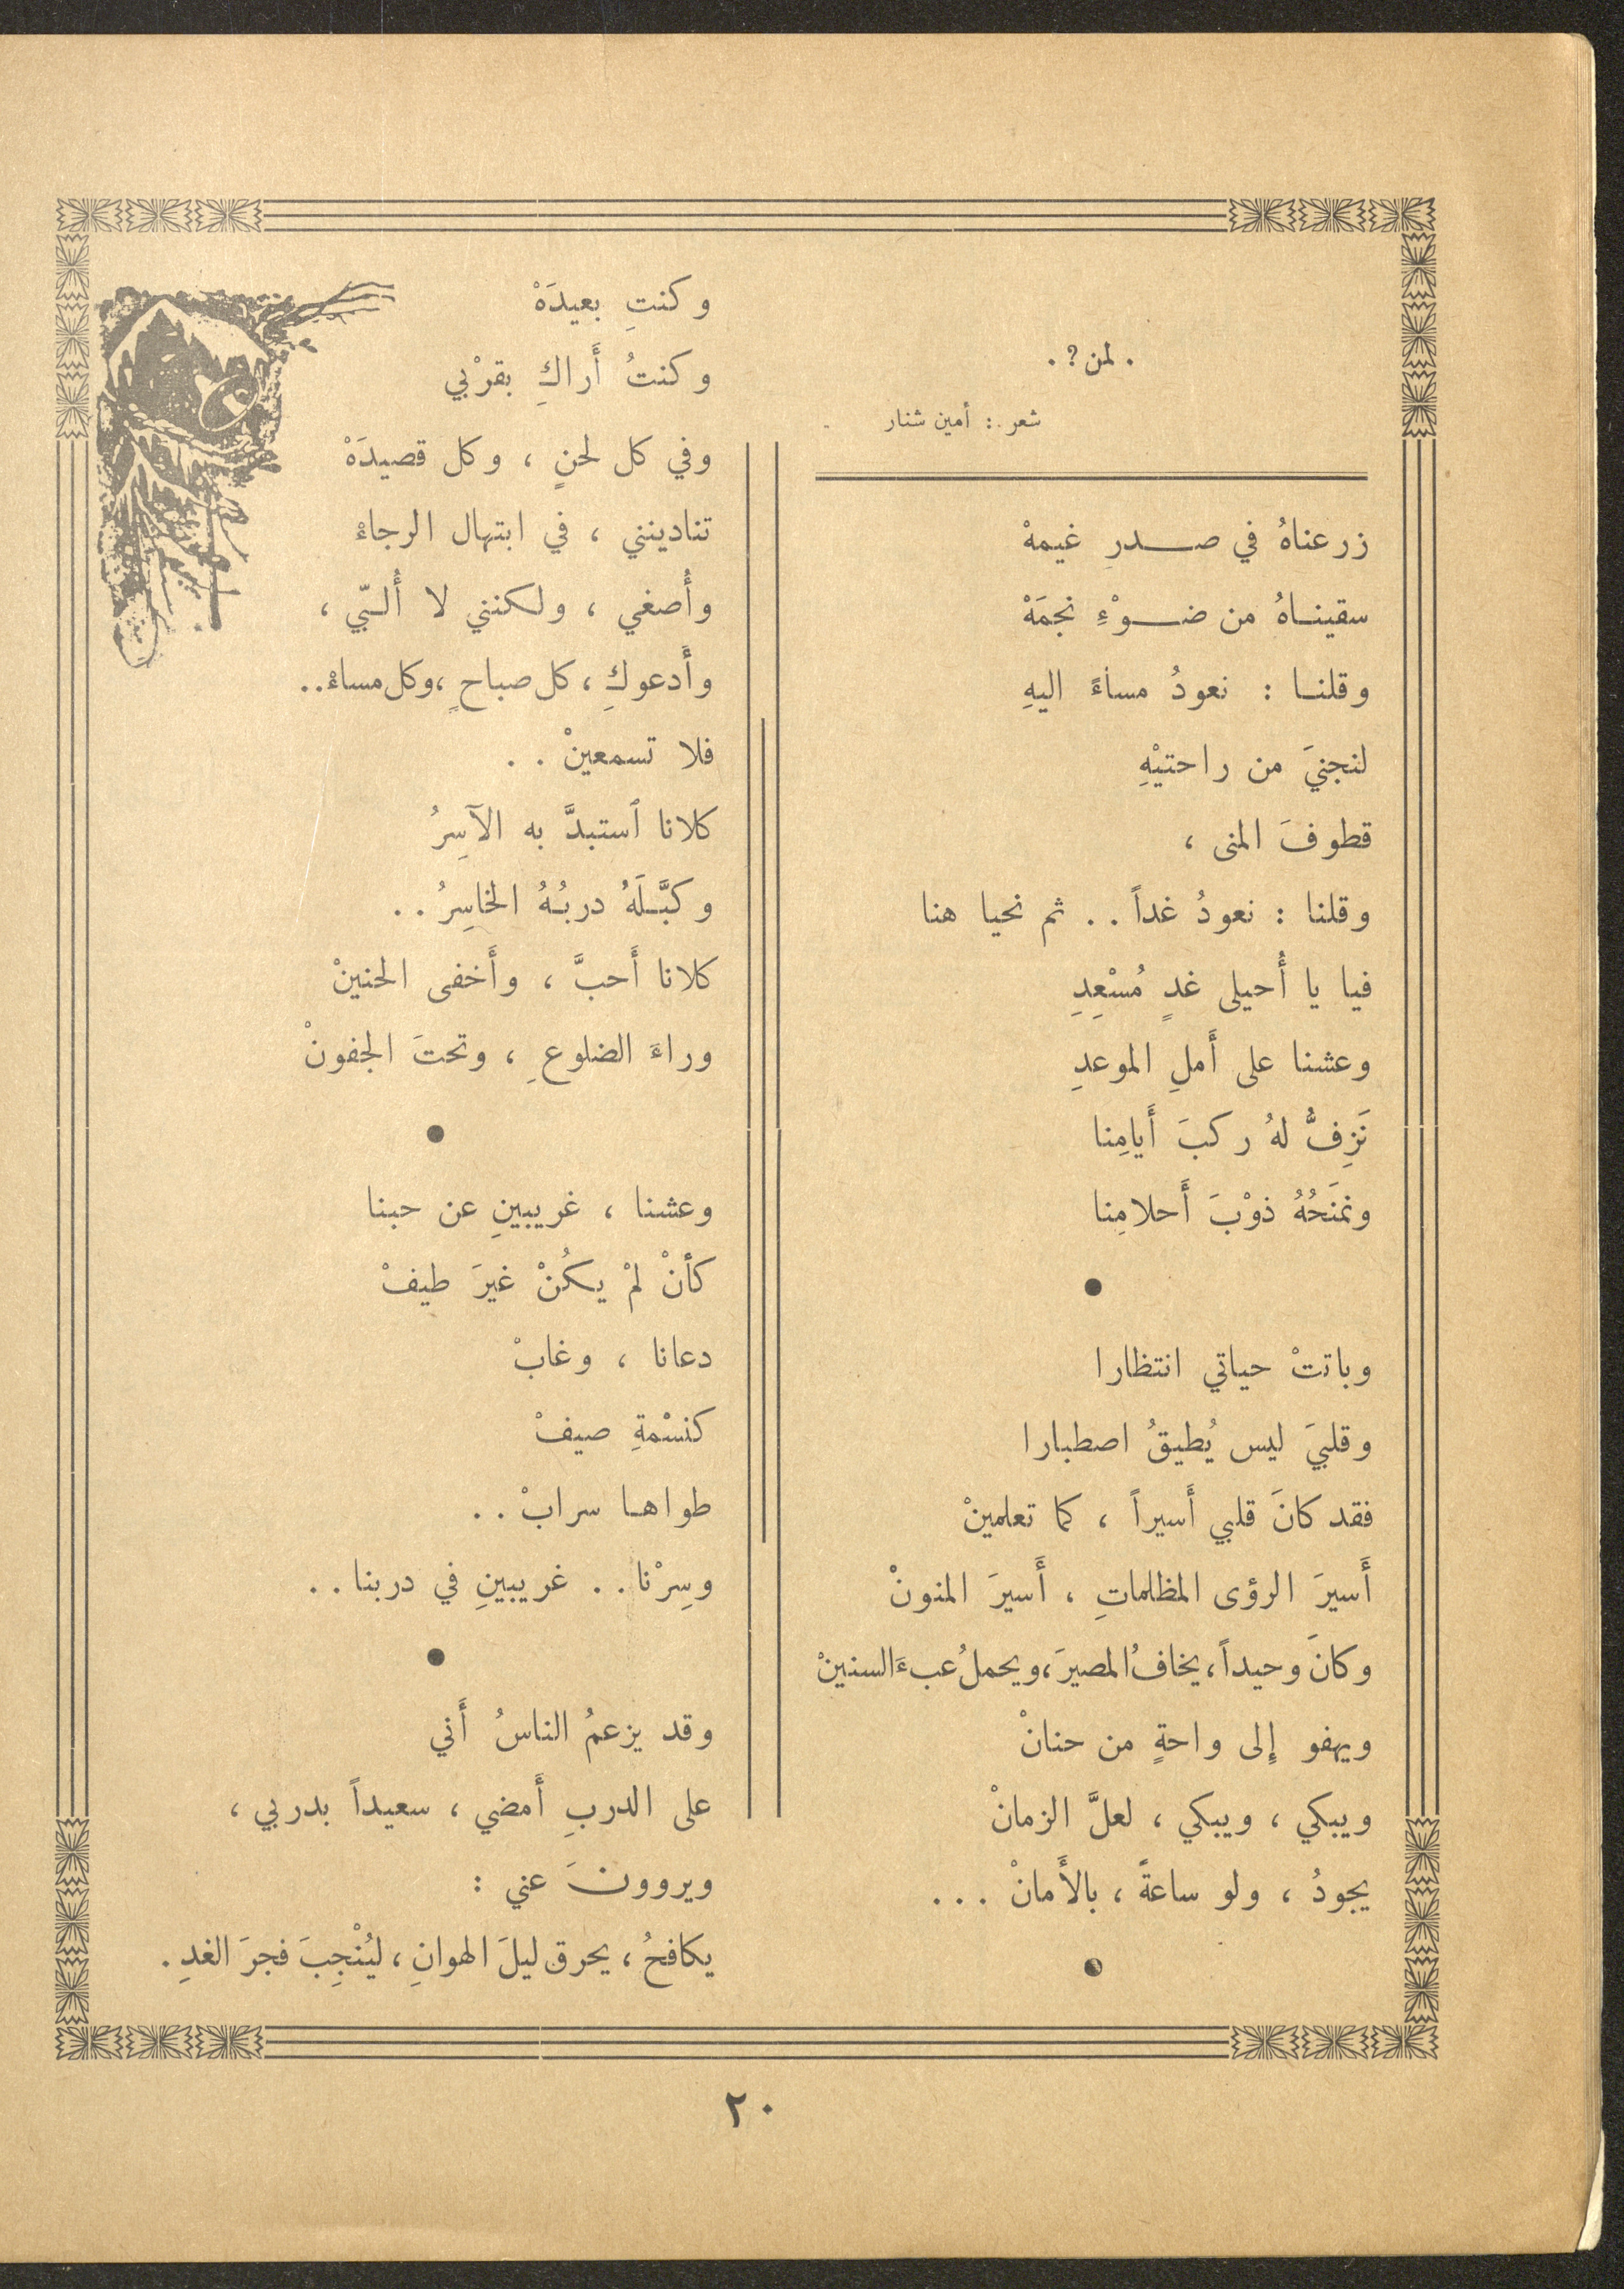 . لمن ? .
شعر : أمين شنار
زرعناهُ في صدرِ غيمهْ
سقيناهُ من ضوْءِ نجمَهْ
وقلنا : نعودُ مساءً اليهِ
لنجنيَ من راحتيْهِ
قطوفَ المنى ،
وقلنا : نعودُ غداً . . ثم نحيا هنا
فيا يا أُحيلى غدٍ مُسْعِدِ
وعشنا على أَملِ الموعدِ
نَزِفُّ لهُ ركبَ أَيامِنا
ونمنَحُهُ ذوْبَ أَحلامِنا
●
وباتتْ حياتي انتظارا
وقلبيَ ليس يُطيقُ اصطبارا
فقد كانَ قلبي أَسيراً ، كما تعلمينْ
أَسيرَ الرؤى المظلماتِ ، أَسيرَ المنونْ
وكانَ وحيداً ، يخافُ المصيرَ ، ويحملُ عبءَ السنينْ
ويهفو إِلى واحةٍ من حنانْ
ويبكي ، ويبكي ، لعلَّ الزمانْ
يجودُ ، ولو ساعةً ، بالأَمانْ . . .
●
وكنتِ بعيدَهْ
وكنتُ أَراكِ بقرْبي
وفي كل لحنٍ ، وكل قصيدَهْ
تنادينني ، في ابتهال الرجاءْ
وأُصغي ، ولكنني لا أُلبّي ،
وأَدعوكِ ، كل صباحٍ ، وكل مساءْ . .
فلا تسمعينْ . .
كلانا ٱستبدَّ به الآسِرُ
وكبَّلَهُ دربُهُ الخاسِرُ . .
كلانا أَحبَّ ، وأَخفى الحنينْ
وراءَ الضلوعِ ، وتحتَ الجفونْ
●
وعشنا ، غريبينِ عن حبنا
كأنْ لمْ يكُنْ غيرَ طيفْ
دعانا ، وغابْ
كنسْمةِ صيفْ
طواها سرابْ . .
وسِرْنا . . غريبينِ في دربنا . .
●
وقد يزعمُ الناسُ أَني
على الدربِ أَمضي ، سعيداً بدربي ،
ويروونَ عني :
يكافحُ ، يحرق ليلَ الهوانِ ، ليُنْجِبَ فجرَ الغدِ .
٢٠